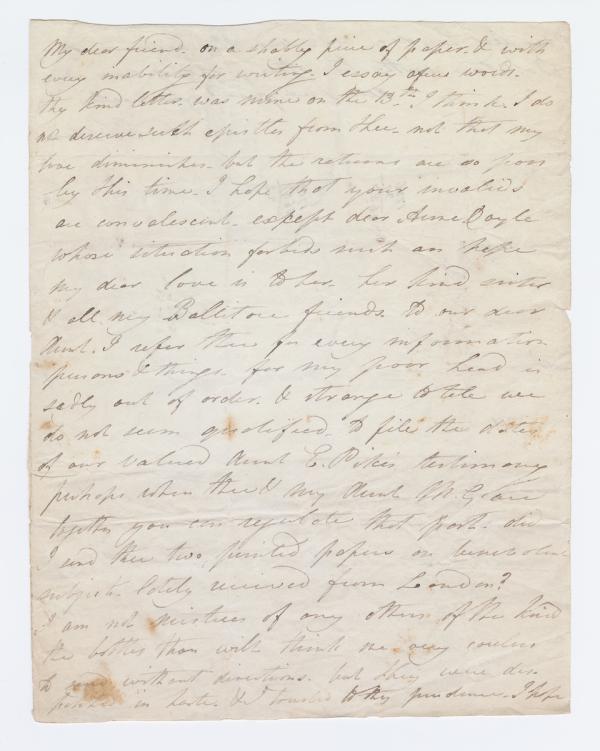 My dear friend. on a shabby piece of paper. & with
every inability for writing. I essay a few words.
thy kind letter was mine on the 13th. I think. I do
not deserve such epistles from thee. not that my
love diminishes. but the returns are so poor
by this time. I hope that your invalids
are convalescent. except dear Anne Doyle
whose situation forbids such an hope
my dear love is to her. her kind sister
& all my Ballitore friends. To our dear
Aunt. I refer thee for every information
persons & things. for my poor head is
sadly out of order. & strange to tell we
do not seem qualified. to fill the dates
of our valued Aunt E. Pike's testimony
perhaps when thee & my Aunt M. G. are
together you can regulate that part. did
I send thee two printed papers on benevolent
subjects. lately received from London?
I am not mistress of any others of the kind
the bottles thou wilt think me very careless
to send without directions. but they were dis-
patched in haste. & I trusted to thy prudence. I hope